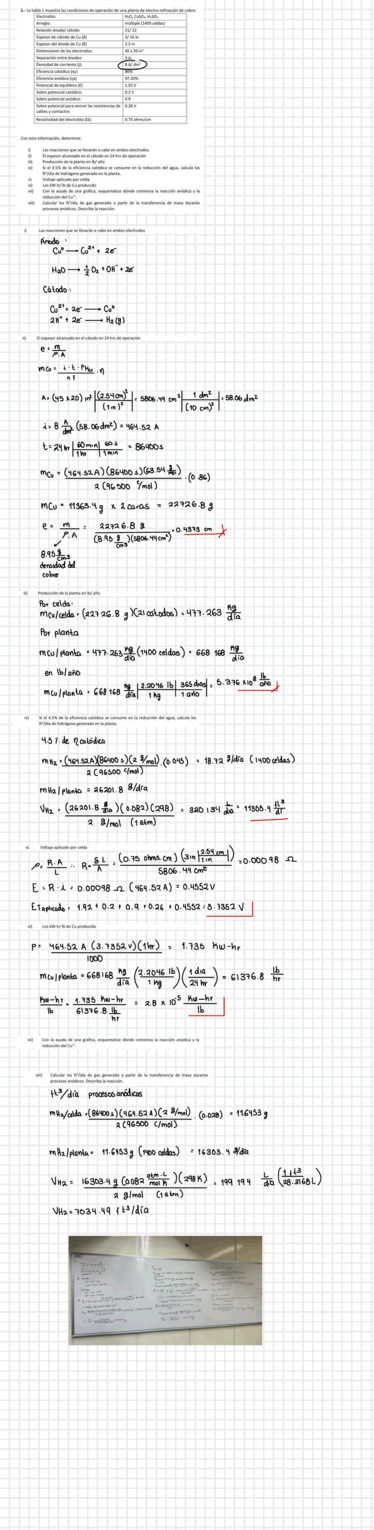 1.- La tabla 1 muestra las condiciones de operación de una planta de electro-refinación de cobre:
Electrolitos: H₂O, CuSO₄, H₂SO₄
Arreglo: múltiple (1400 celdas)
Relación ánodo/ cátodo 21/ 22
Espesor de cátodo de Cu (δ) 3/ 16 in
Espesor del ánodo de Cu (δ) 2.5 in
Dimensiones de los electrodos: 45 x 20 in²
Separación entre ánodos: 3 in
Densidad de corriente (j) 8 A/ dm²
Eficiencia catódica (ηc) 86%
Eficiencia anódica (ηa) 97.20%
Potencial de equilibrio (E) 1.92 V
Sobre potencial catódico: 0.2 V
Sobre potencial anódico: 0.9
Sobre potencial para vencer las resistencias de cables y contactos: 0.26 V
Resistividad del electrolito (Ω) 0.75 ohms/cm
Con esta información, determine:
i) Las reacciones que se llevarán a cabo en ambos electrodos
ii) El espesor alcanzado en el cátodo en 24 hrs de operación
iii) Producción de la planta en lb/ año
iv) Si el 4.5% de la eficiencia catódica se consume en la reducción del agua, calcula los
ft³/día de hidrógeno generado en la planta.
v) Voltaje aplicado por celda
vi) Los kW-h/ lb de Cu producido
vii) Con la ayuda de una gráfica, esquematice dónde comienza la reacción anódica y la
reducción del Cu²⁺.
viii) Calcular los ft³/día de gas generado a partir de la transferencia de masa durante
procesos anódicos. Describa la reacción.
i) Las reacciones que se llevarán a cabo en ambos electrodos
Ánodo :
Cu⁰ ⟶ Cu²⁺ + 2e⁻
H₂O ⟶ 1/2 O₂ + OH⁻ + 2e⁻
Cátodo :
Cu²⁺ + 2e⁻ ⟶ Cu⁰
2H⁺ + 2e⁻ ⟶ H₂(g)
ii) El espesor alcanzado en el cátodo en 24 hrs de operación
e = m / ρ.A
A = (45 x 20) in² |(2.54 cm)² / (1 in)²| = 5806.44 cm² |1 dm² / (10 cm)²| = 58.06 dm²
i = 8 A/dm² (58.06 dm²) = 464.52 A
t = 24 hr | 60 min / 1 hr | 60 s / 1 min = 86400 s
mCu = (464.52 A)(86400 s)(63.54 g/mol) / 2 (96500 C/mol) . (0.86)
mCu = 11363.4 g x 2 caras = 22726.8 g
e = m / ρ.A = 22726.8 g / (8.95 g/cm³)(5806.44 cm²) = 0.4373 cm
8.95 g/cm³
densidad del
cobre
iii) Producción de la planta en lb/ año
Por celda:
mCu/celda = (22726.8 g)(21 catodos) = 477.263 Kg/día
Por planta
mCu/planta = 477.263 Kg/día (1400 celdas) = 668 168 Kg/día
en lb/año
mCu/planta = 668 168 Kg/día | 2.2046 lb / 1 Kg | 365 días / 1 año | = 5.376 x10⁸ lb/año
iv) Si el 4.5% de la eficiencia catódica se consume en la reducción del agua, calcula los
ft³/día de hidrógeno generado en la planta.
4.5 % de η catódica
mH₂ = (464.52A)(86400 s)(2 g/mol) / 2 (96500 C/mol) . (0.045) = 18.72 g/día (1400 celdas)
mH₂/planta = 26201.8 g/día
VH₂ = (26201.8 g/día)(0.082)(298) / 2 g/mol (1 atm) = 320 134 L/día = 11305.4 ft³/d
v) Voltaje aplicado por celda
ρ = R.A / L ∴ R = ρ L / A = (0.75 ohms.cm) (3in |2.54 cm / 1 in|) / 5806.44 cm² = 0.00098 Ω
E = R . i = 0.00098 Ω (464.52 A) = 0.4552 V
E Taplicado = 1.92 + 0.2 + 0.9 + 0.26 + 0.4552 = 3.7352 V
vi) Los kW-h/ lb de Cu producido
P = 464.52 A (3.7352 V)(1hr) / 1000 = 1.735 kw-hr
mCu/planta = 668168 Kg/día (2.2046 lb / 1 Kg) (1 día / 24 hr) = 61376.8 lb/hr
kw-hr / lb = 1.735 kw-hr / 61376.8 lb/hr = 2.8 x 10⁻⁵ kw-hr / lb
vii) Con la ayuda de una gráfica, esquematice dónde comienza la reacción anódica y la
reducción del Cu²⁺.
viii) Calcular los ft³/día de gas generado a partir de la transferencia de masa durante
procesos anódicos. Describa la reacción.
ft³/día procesos anódicos
mH₂/celda = (86400 s)(464.52 A)(2 g/mol) / 2 (96500 C/mol) . (0.028) = 11.6453 g
mH₂/planta = 11.6453 g (1400 celdas) = 16303.4 g/día
VH₂ = 16303.4 g (0.082 atm.L / mol K)(298 K) / 2 g/mol (1 atm) = 199 194 L/día (1 ft³ / 28.3168 L)
VH₂ = 7034.49 ft³/día